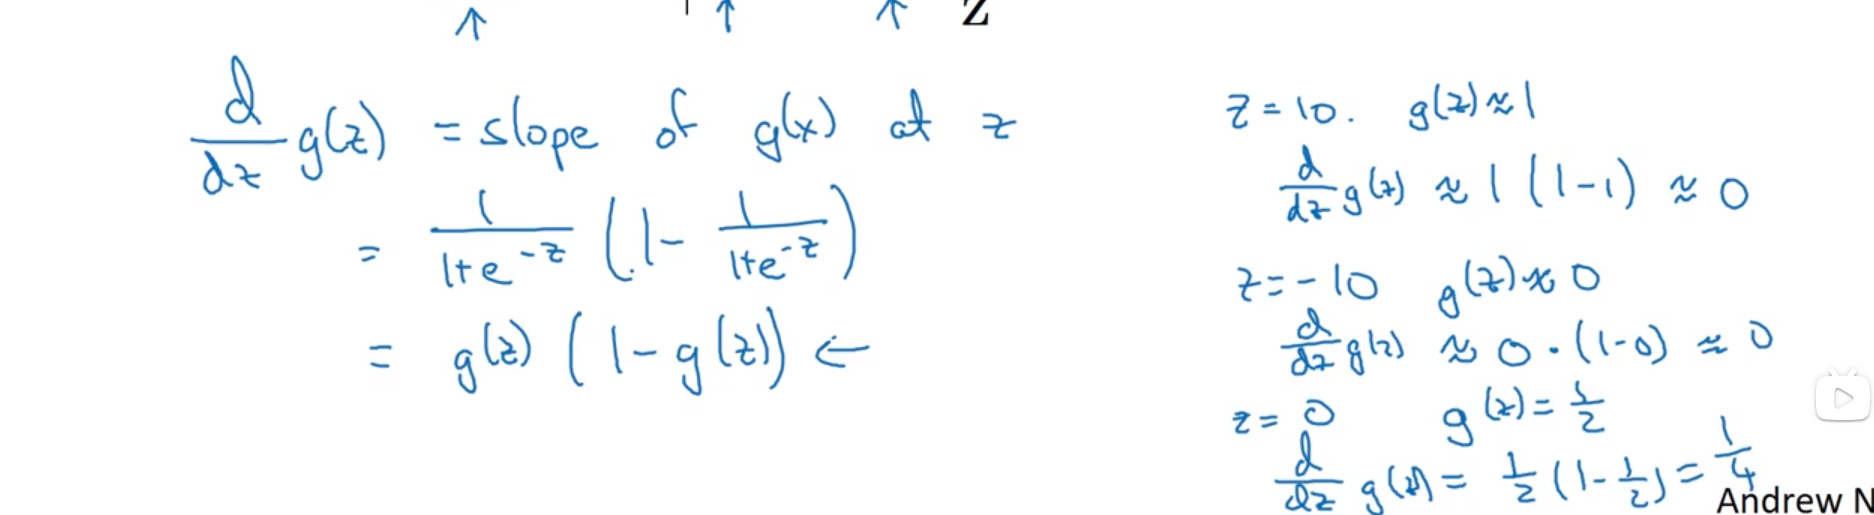 z
d/dz g(z) = slope of g(x) at z
= 1/(1+e^-z) (1 - 1/(1+e^-z))
= g(z) (1 - g(z)) ←
z = 10. g(z) ≈ 1
d/dz g(z) ≈ 1 (1-1) ≈ 0
z = -10 g(z) ≈ 0
d/dz g(z) ≈ 0 · (1-0) ≈ 0
z = 0 g(z) = 1/2
d/dz g(z) = 1/2 (1 - 1/2) = 1/4
Andrew N